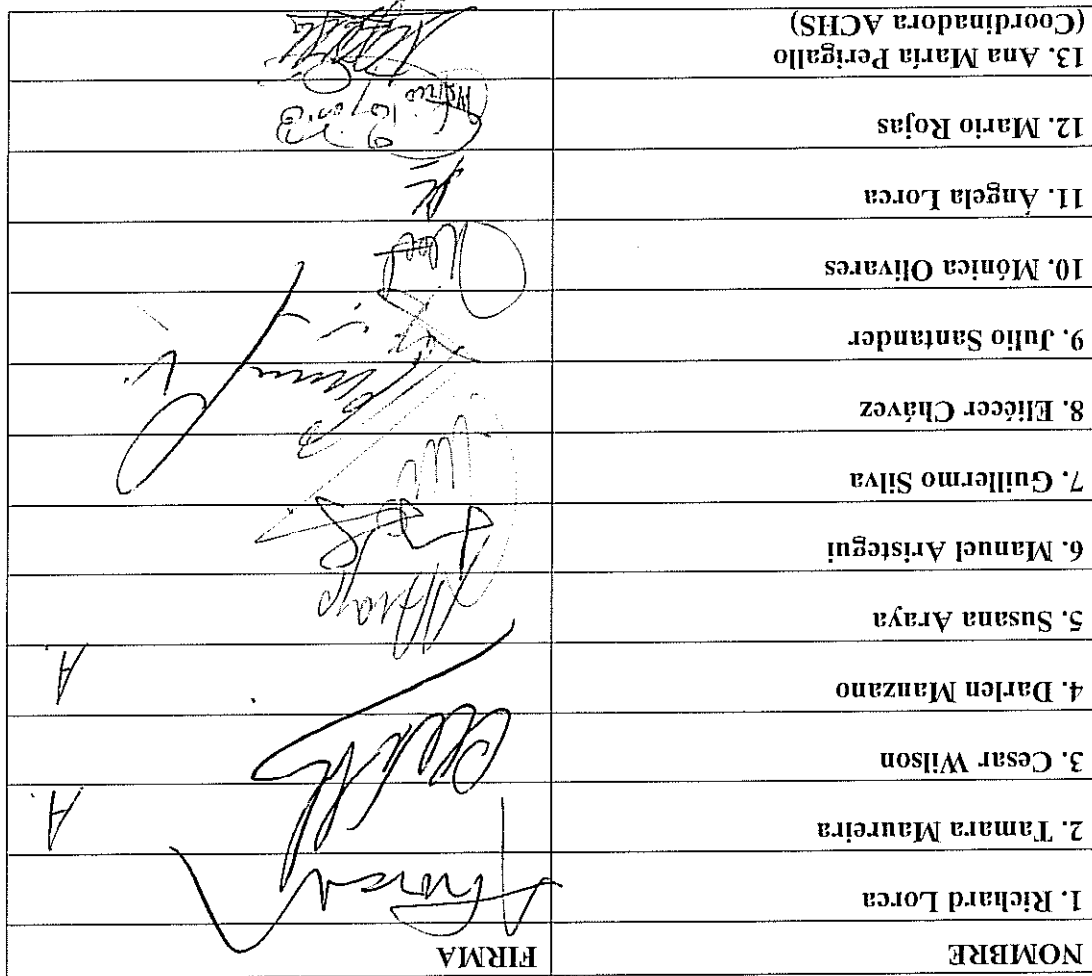 NOMBRE FIRMA
1. Richard Lorca
2. Tamara Maureira A.
3. Cesar Wilson
4. Darlen Manzano A.
5. Susana Araya
6. Manuel Aristegui
7. Guillermo Silva
8. Eliécer Chávez
9. Julio Santander
10. Mónica Olivares
11. Ángela Lorca
12. Mario Rojas
13. Ana María Perigallo
(Coordinadora ACHS)